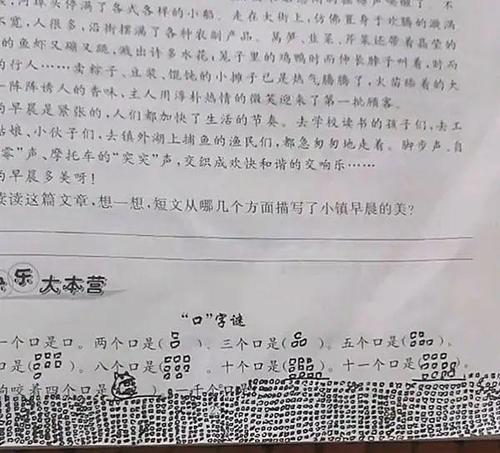 河埠头停满了各式各样的小船。走在大街上,仿佛置身于欢腾的激流
不宽,人很多,沿街摆满了各种农副产品。莴笋、韭菜、芹菜还带着晶莹的
的鱼虾又蹦又跳,溅出许多水花,笼子里的鸡鸭时而伸长脖子叫着,时而
的行人……卖粽子、豆浆、馄饨的小摊子已是热气腾腾了,火苗舔着的大
一阵阵诱人的香味,主人用淳朴热情的微笑迎来了第一批顾客。
的早晨是紧张的,人们都加快了生活的节奏。去学校读书的孩子们,去工
姑娘、小伙子们,去镇外湖上捕鱼的渔民们,都急匆匆地走着。脚步声、自
零”声、摩托车的“突突”声,交织成欢快和谐的交响乐……
的早晨多美呀!
读读这篇文章,想一想,短文从哪几个方面描写了小镇早晨的美?
快乐大本营
“口”字谜
一个口是口。两个口是( )、三个口是( )。五个口是( )。
口是( )。八个口是( )。十个口是( )。十一个口是( )。
狗咬着四个口是( )。一千个口